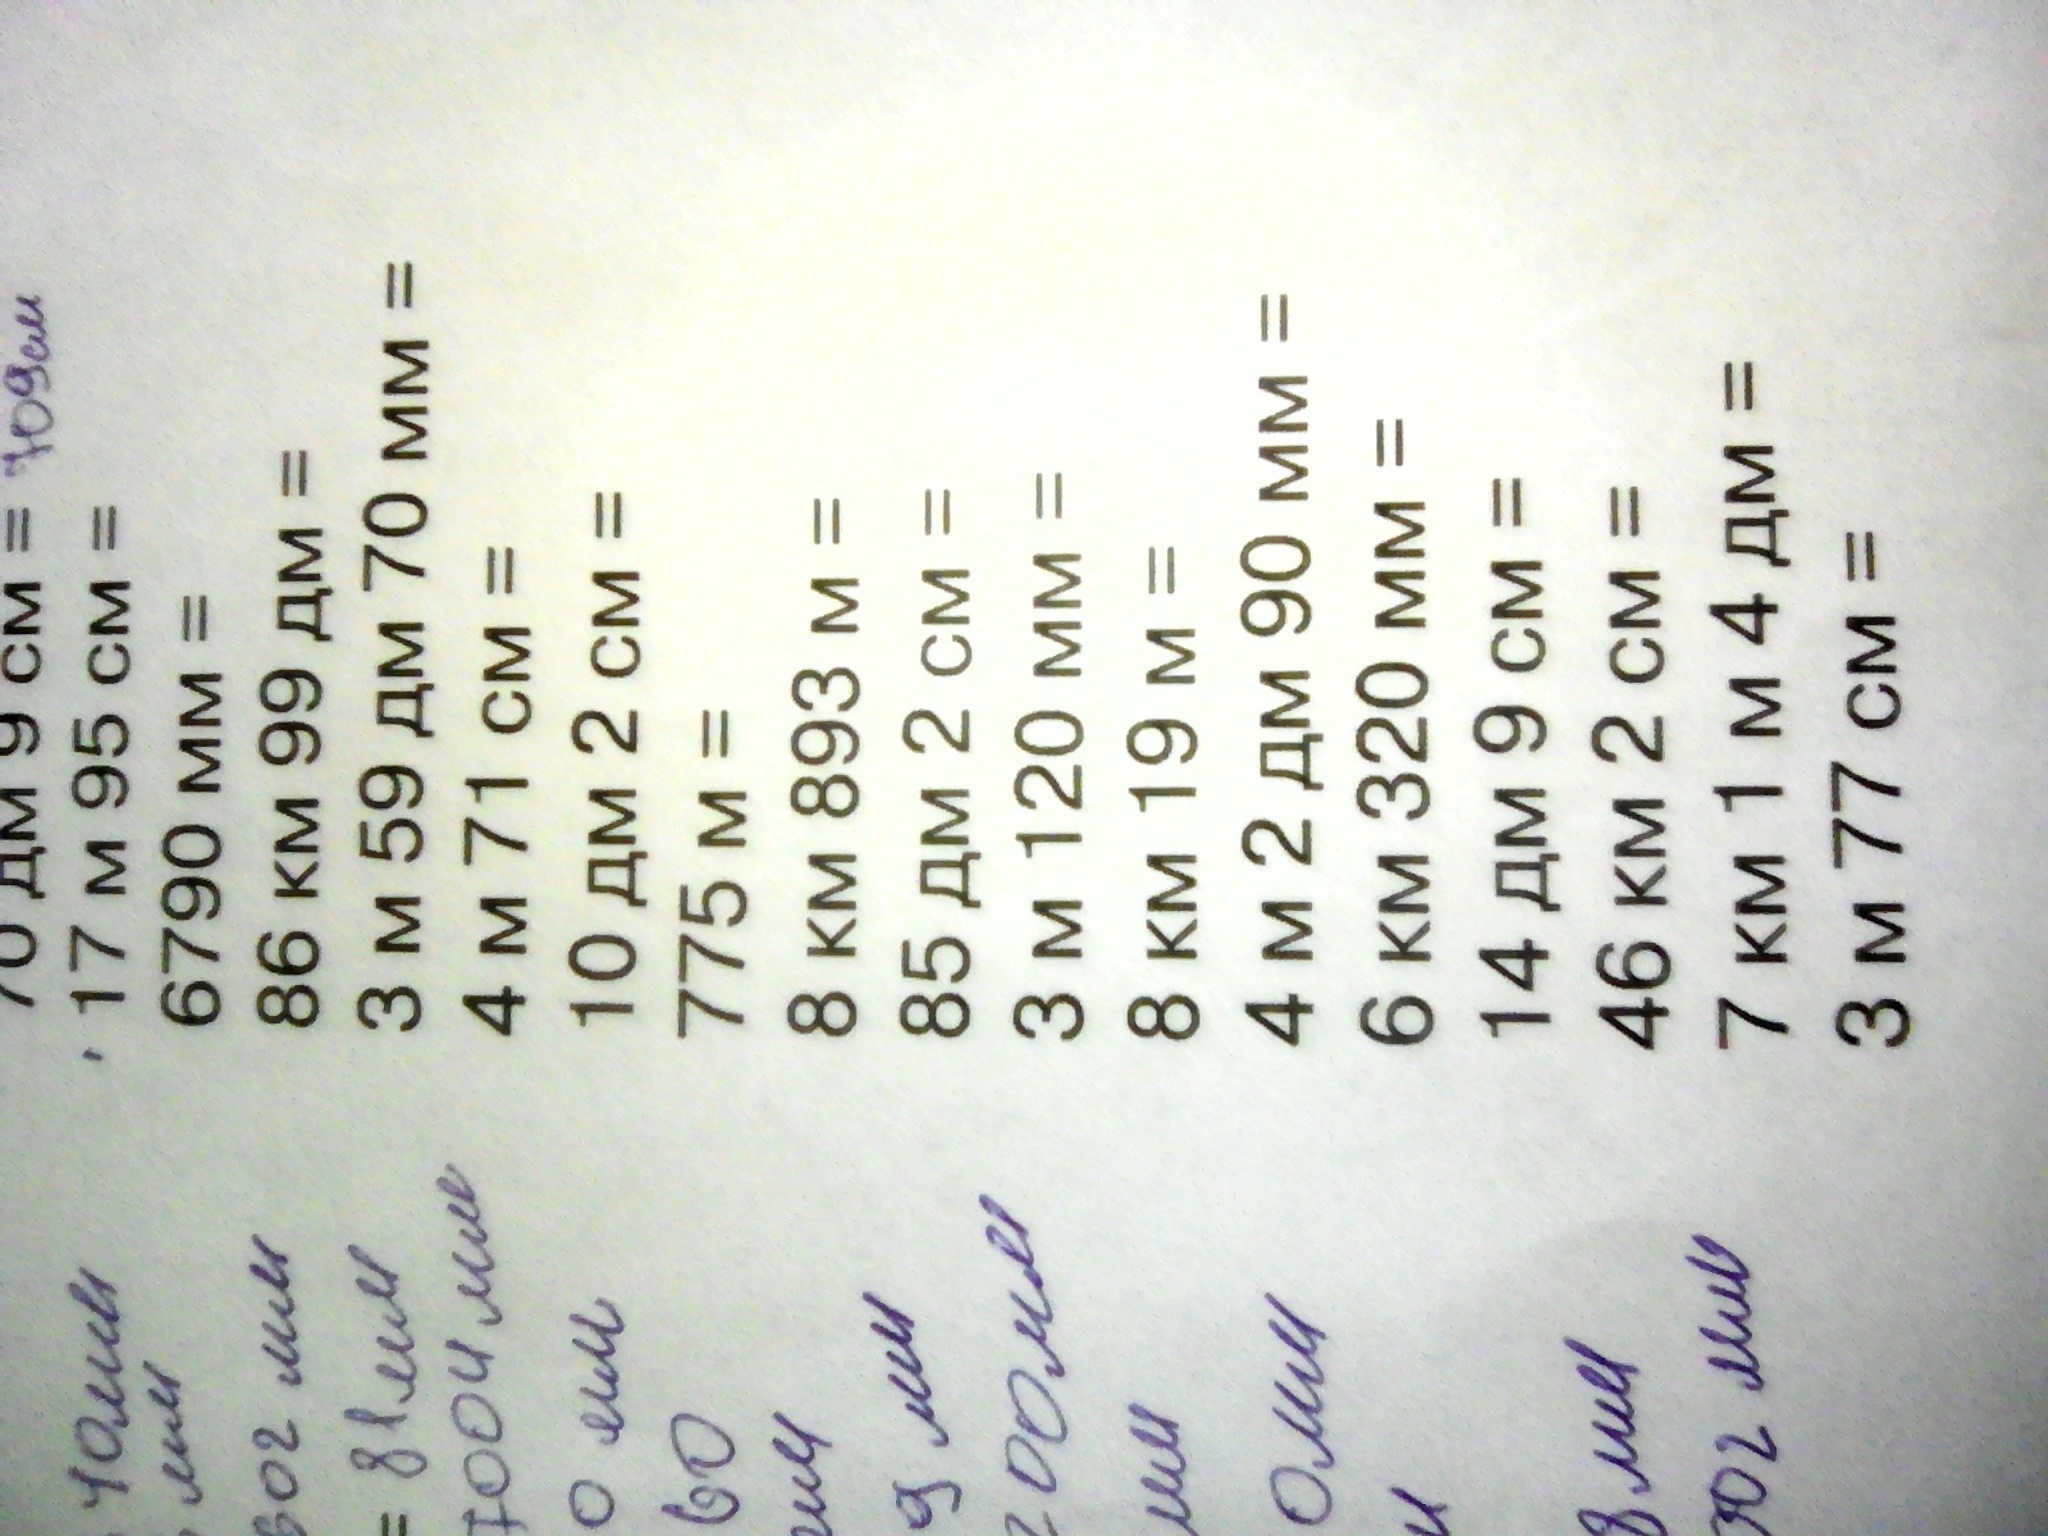 70 дм 9 см = 709см
17 м 95 см =
6790 мм =
86 км 99 дм =
3 м 59 дм 70 мм =
4 м 71 см =
10 дм 2 см =
775 м =
8 км 893 м =
85 дм 2 см =
3 м 120 мм =
8 км 19 м =
4 м 2 дм 90 мм =
6 км 320 мм =
14 дм 9 см =
46 км 2 см =
7 км 1 м 4 дм =
3 м 77 см =
мм
02 мм
= 81мм
7004мм
0 мм
мм
9 мм
200мм
мм
0мм
8мм
302 мм